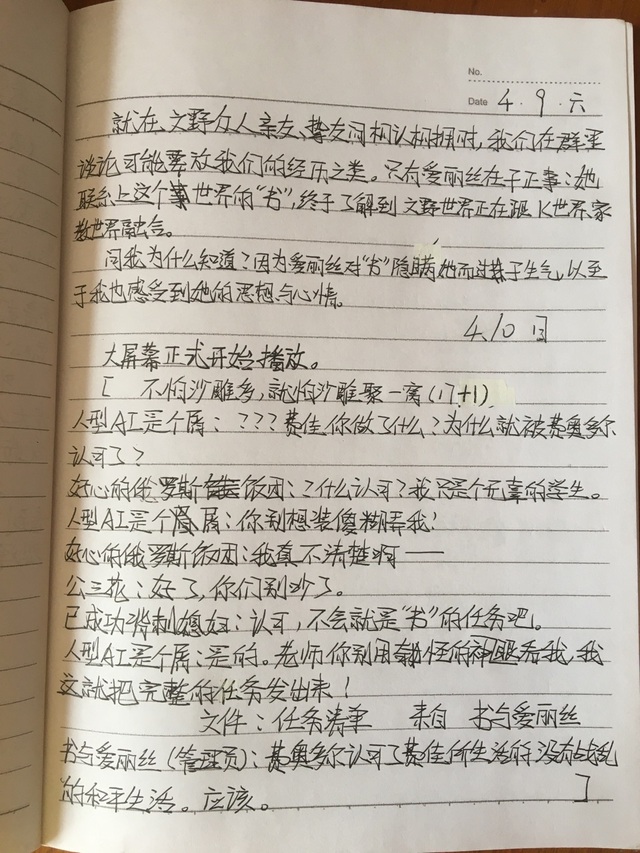 No.
Date 4.9.六
就在文野众人亲友、挚友间相认相拥时,我们在群里
谈论可能要放我们的经历之类。只有爱丽丝在干正事:她
联系上这个世界的“书”,终于了解到文野世界正在跟K世界、家
教世界融合。
问我为什么知道?因为爱丽丝对“书”隐瞒她而过于生气,以至
于我也感受到她的思想与心情。
4.10 日
大屏幕正式开始播放。
[ 不怕沙雕多,就怕沙雕聚一窝(17+1)
人型AI是个屑:???费佳你做了什么?为什么就被费奥多尔
认可了?
好心的俄罗斯饭团:?什么认可?我只是个无辜的学生。
人型AI是个屑:你别想装傻糊弄我!
好心的俄罗斯饭团:我真不清楚啊——
公三花:好了,你们别吵了。
已成功背刺媳妇:认可,不会就是“书”的任务吧。
人型AI是个屑:是的。老师你别用奇怪的眼神看我,我
这就把完整的任务发出来!
文件:任务清单 来自 书与爱丽丝
书与爱丽丝(管理员):费奥多尔认可了费佳所生活的没有战乱
的和平生活。应该。 ]